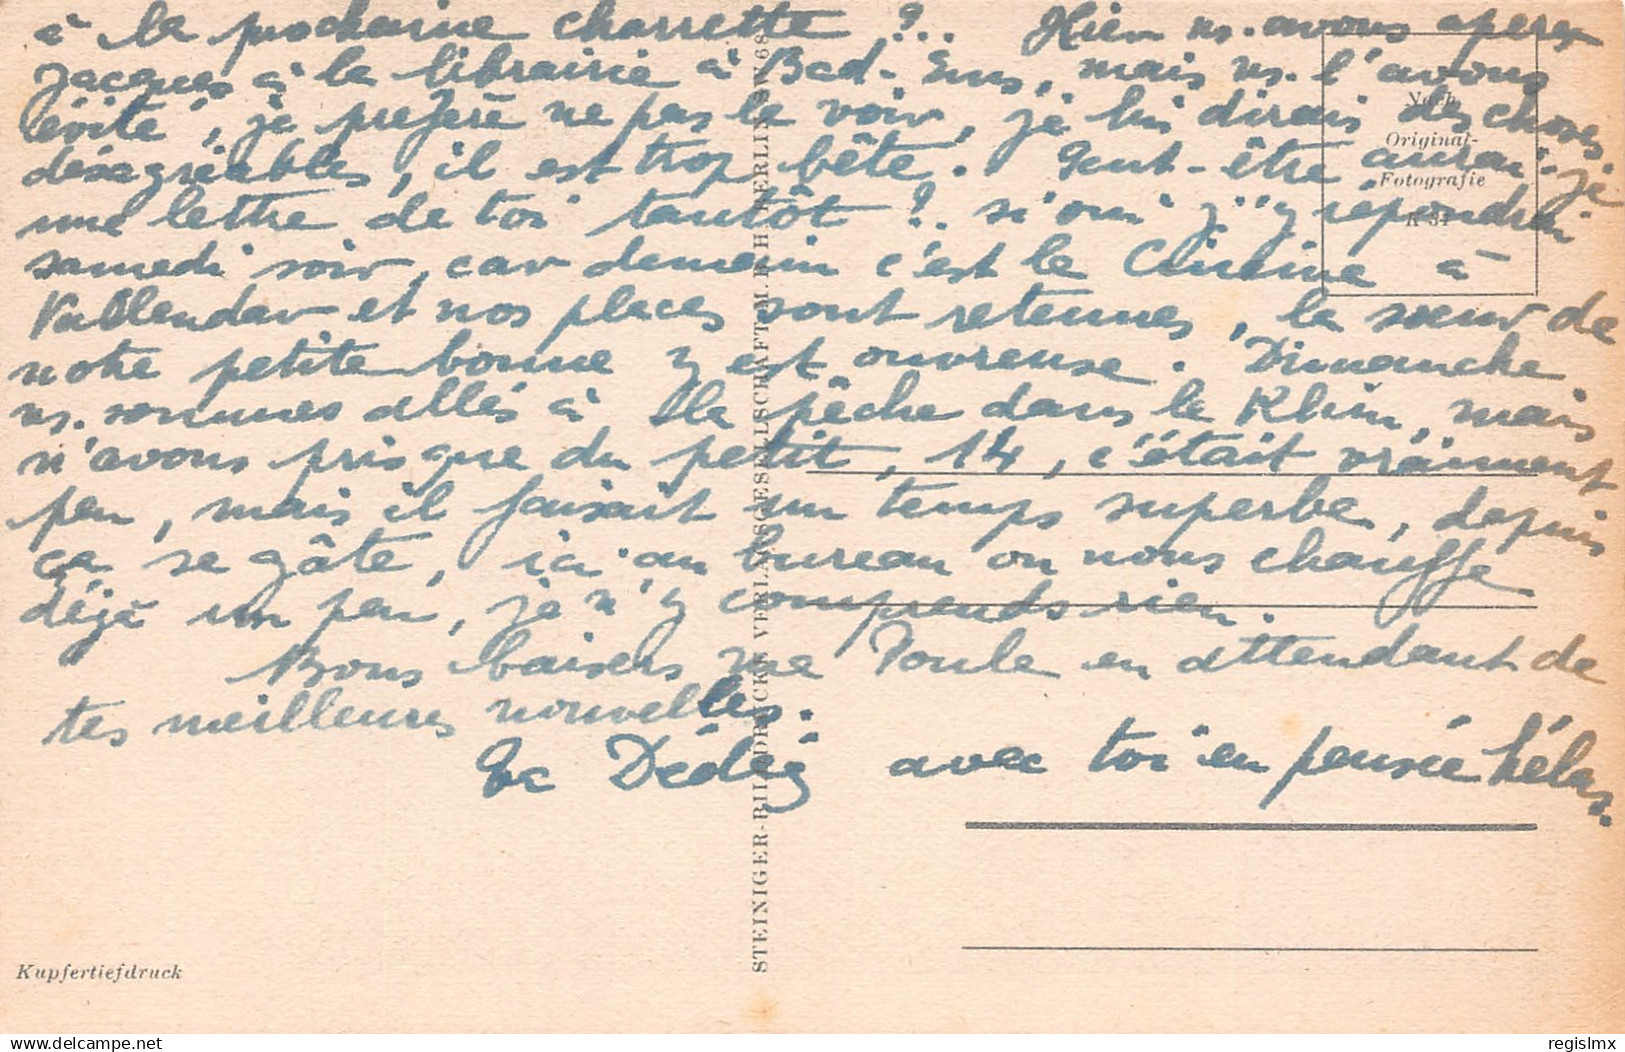 à la prochaine charrette ?.. Hier ns. avons aperçu
Jacques à la librairie à Bad-Ems, mais ns. l'avons
évité, je préfère ne pas le voir, je lui dirais des choses
désagréables, il est trop bête. Peut-être aurai-je
une lettre de toi tantôt ?. si oui j'y répondrai
samedi soir, car demain c'est le Cinéma à
Vallendar et nos places sont retenues, la sœur de
notre petite bonne y est ouvreuse. Dimanche
ns. sommes allés à la pêche dans le Rhin, mais
n'avons pris que du petit, 14, c'était vraiment
peu, mais il faisait un temps superbe, depuis
ça se gâte, ici au bureau on nous chauffe
déjà un peu, je n'y comprends rien.
Bons baisers ma Poule en attendant de
tes meilleures nouvelles.
Dédé avec toi en pensée hélas.
Nach
Original-
Fotografie
STEINIGER-BILDDRUCKE VERLAGSGESELLSCHAFT M. B. H. BERLIN SW 68
Kupfertiefdruck
delcampe.net
regislmx